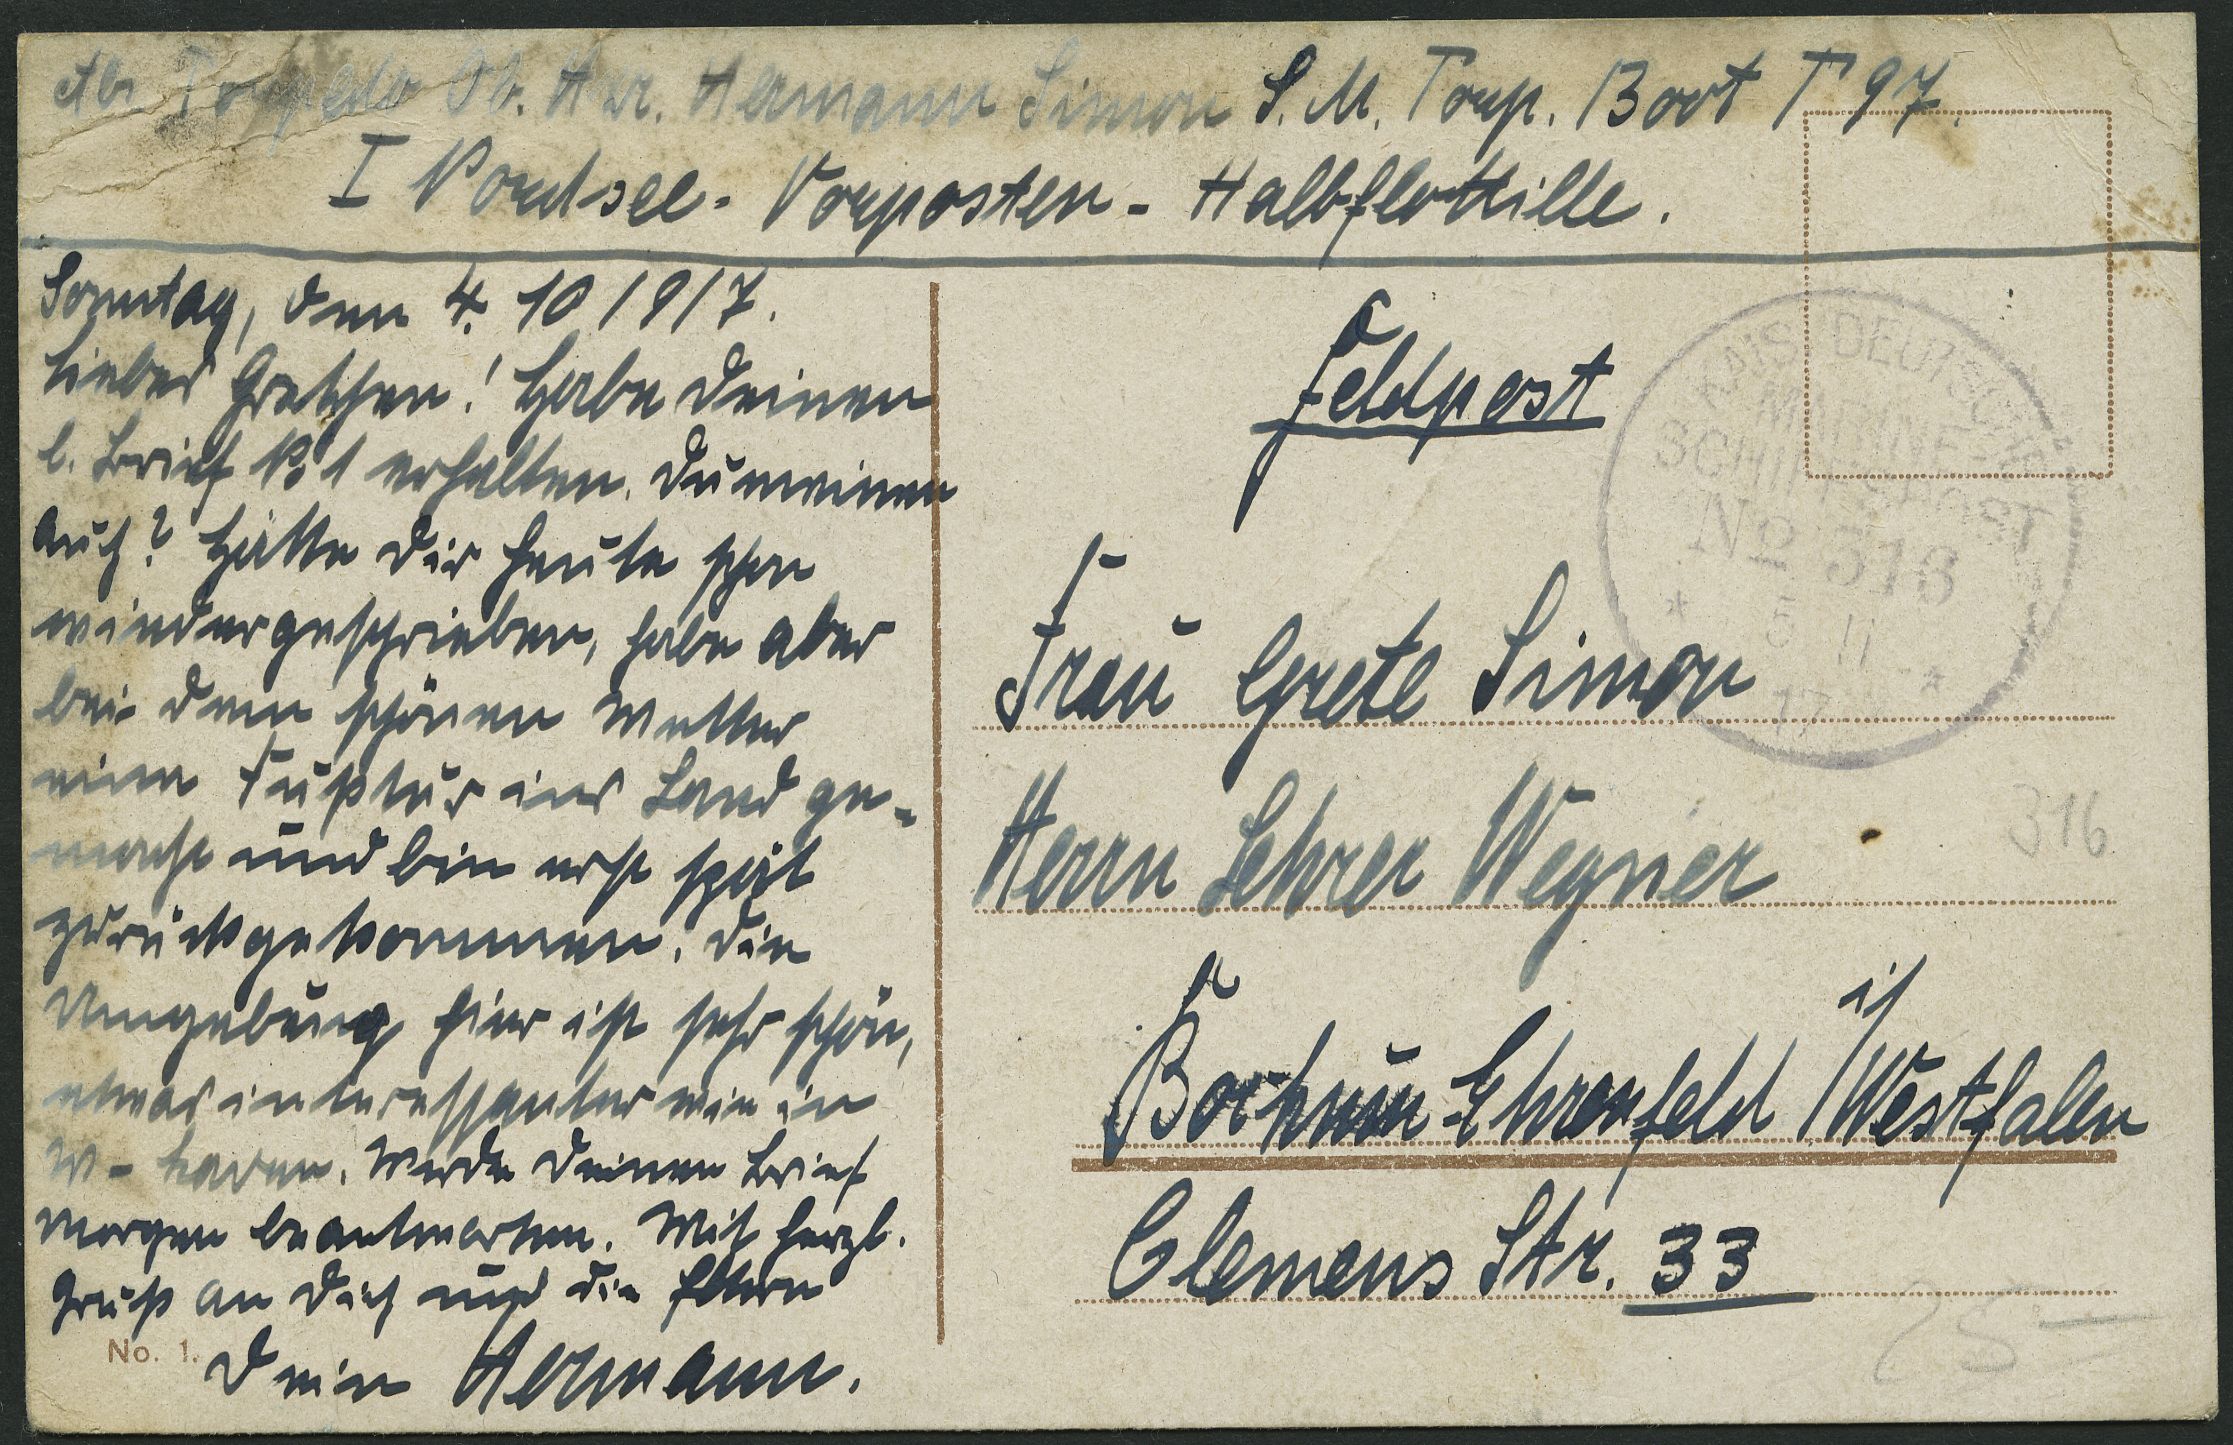 Abs. Torpedo Ob. Hzr. Hermann Simon S. M. Torp. Boot T 97.
I Nordsee - Vorposten - Halbflottille.
Sonntag, den 4. 10 1917.
Liebes Gretchen! Habe Deinen
l. Brief No 1 erhalten. Du meinen
auch? Hätte Dir heute schon
wiedergeschrieben, habe aber
bei dem schönen Wetter
eine Fußtur ins Land ge-
macht und bin erst spät
zurückgekommen. Die
Umgebung hier ist sehr schön,
etwas interessanter wie in
W-haven. Werde Deinen Brief
morgen beantworten. Mit herzl.
Gruß an Dich und die Eltern
Dein Hermann.
No. 1.
Feldpost
KAIS. DEUTSCHE
MARINE-
SCHIFFSPOST
No 316
* 5 11 *
17
Frau Grete Simon
Herrn Lehrer Wegner
316
Bochum-Ehrenfeld i/Westfalen
Clemens Str. 33
25 —